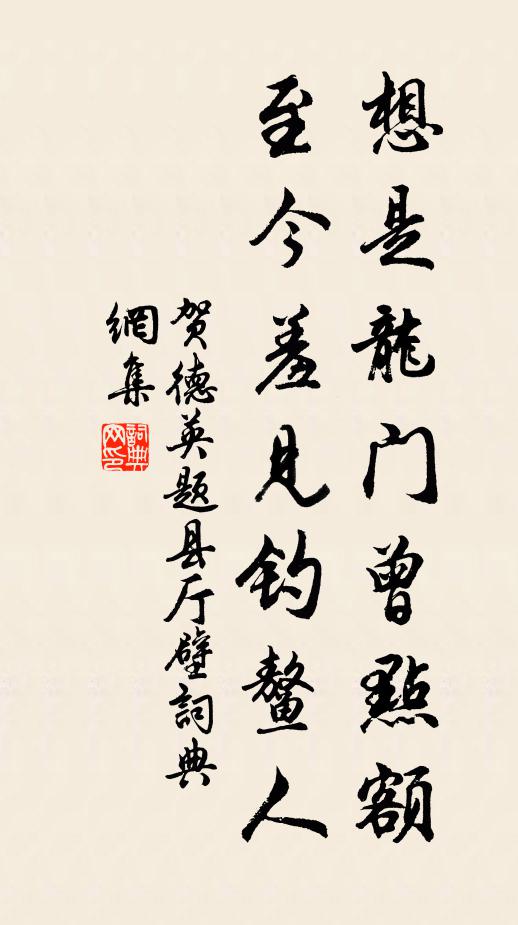 想是龍门曾點額
至今羞見钓鰲人
贺德英题县厅壁詞典
網集
詞典
网印